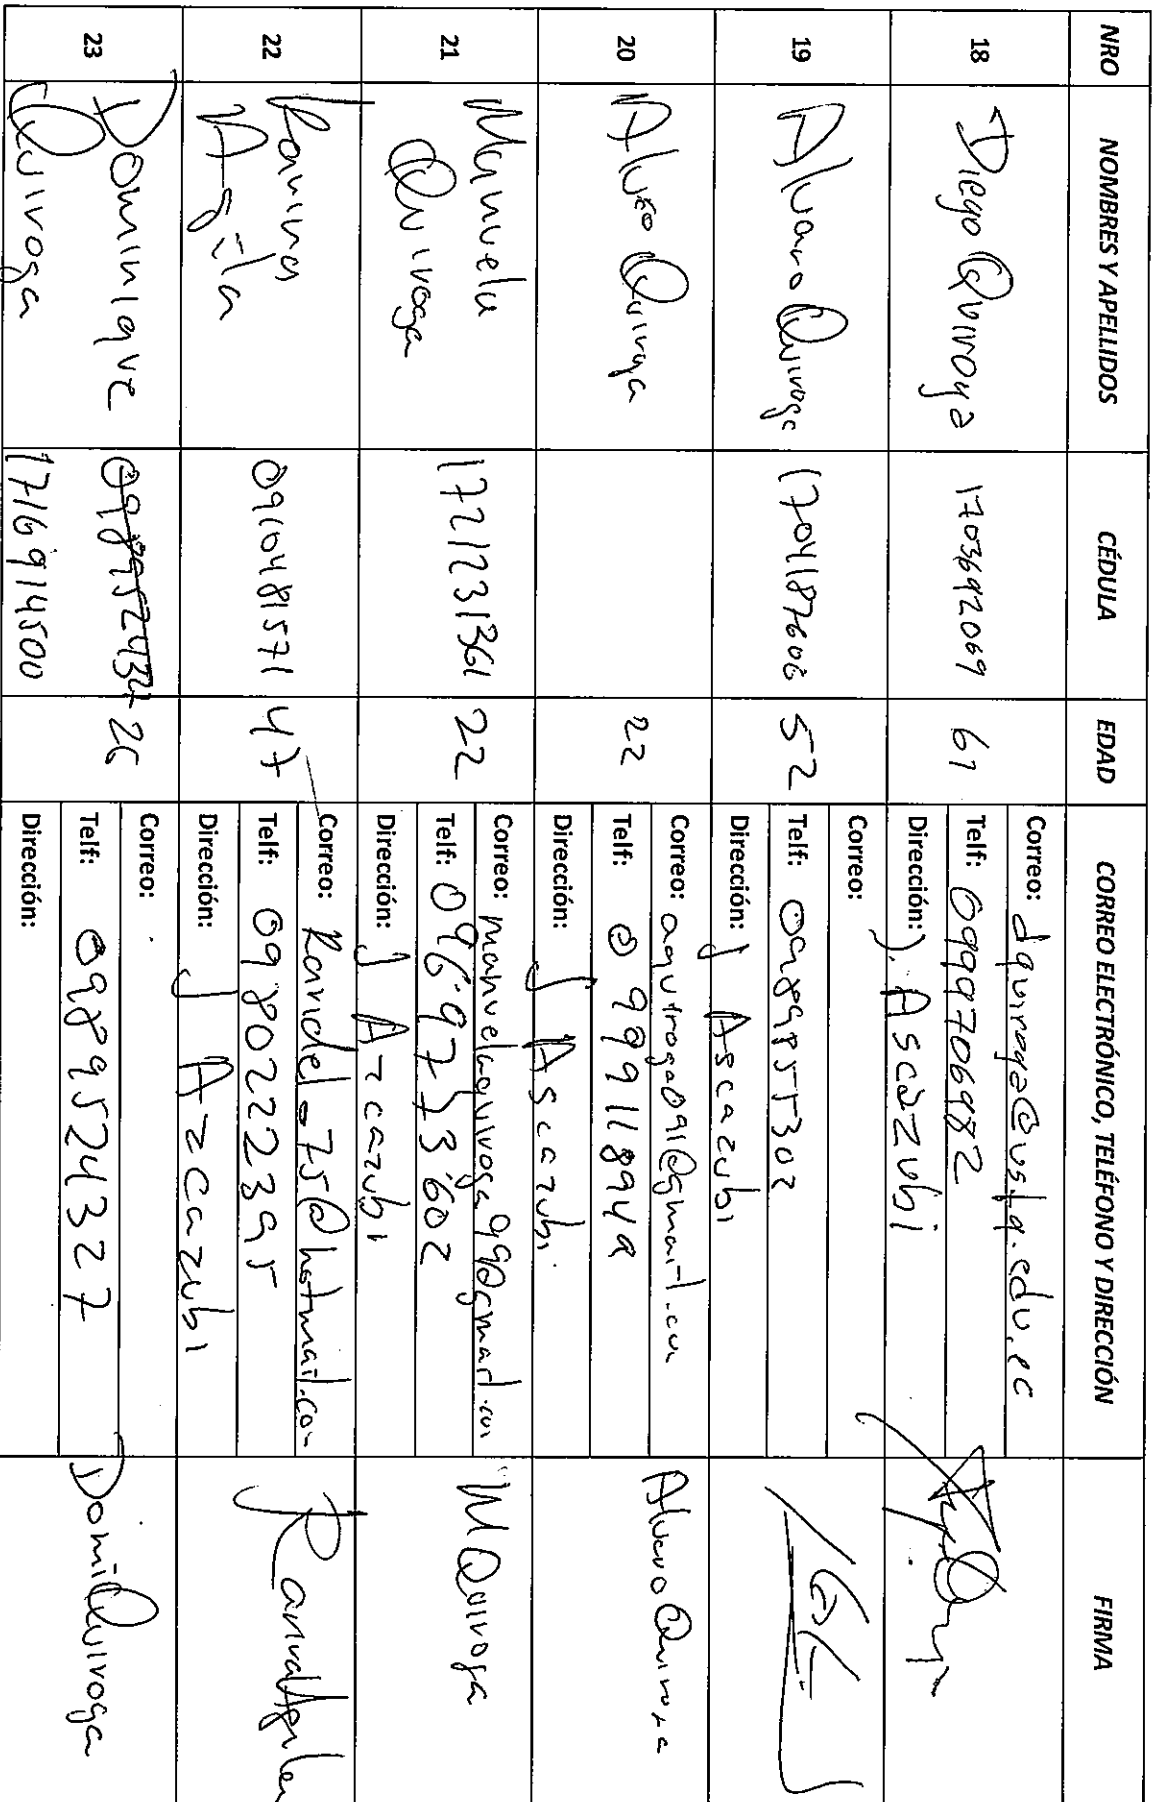 NRO NOMBRES Y APELLIDOS CÉDULA EDAD CORREO ELECTRÓNICO, TELÉFONO Y DIRECCIÓN FIRMA
18 Diego Quiroga 1703692069 61
Correo: dquiroga@usfq.edu.ec
Telf: 0999706982
Dirección: J. Ascazubi
19 Alvaro Quiroga 1704187606 52
Correo:
Telf: 0989855302
Dirección: J Ascazubi
20 Alvaro Quiroga 22
Correo: aquiroga091@gmail.com
Telf: 0999118949
Dirección: J Ascazubi
Alvaro Quiroga
21 Manuela
Quiroga
1721231361 22
Correo: manuelaquiroga99@gmail.com
Telf: 0969733602
Dirección: J Azcazubi
M Quiroga
22
0910481571 47
Correo:
Telf: 0980222395
Dirección: J Azcazubi
23 Dominique
Quiroga
1716914500 26
Correo:
Telf: 0989524327
Dirección:
Domi Quiroga